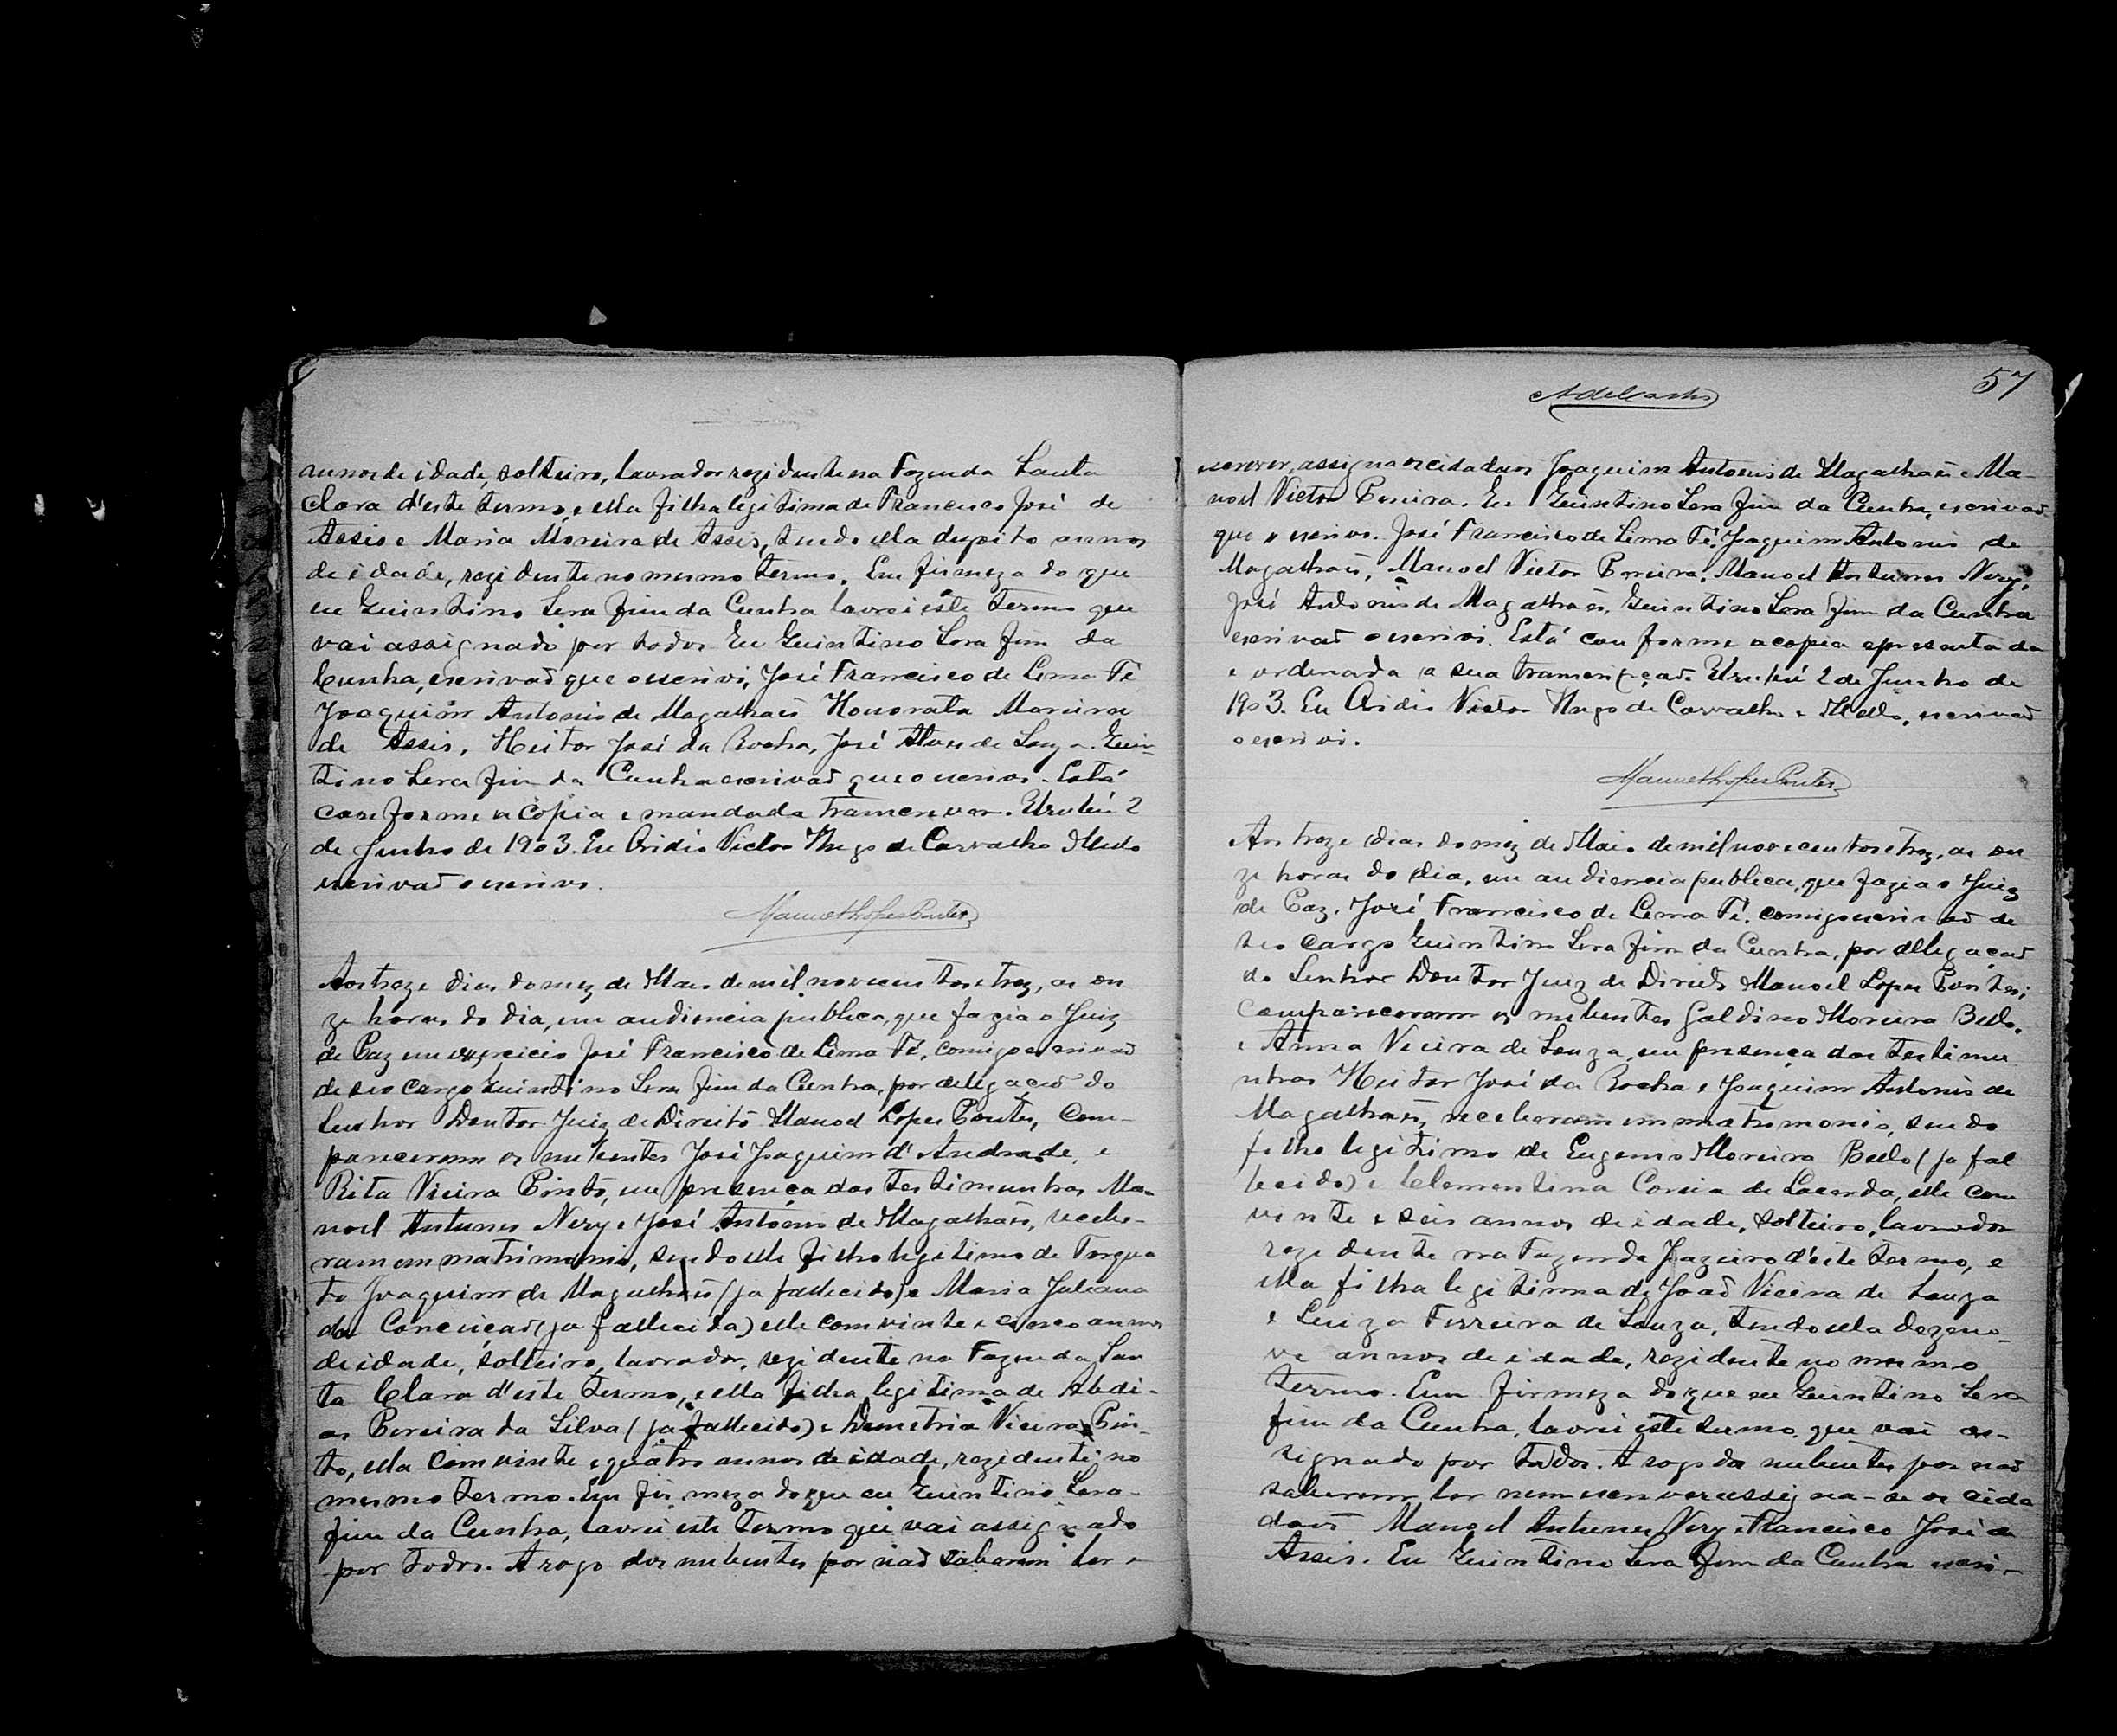 annos de idade, solteiro, lavrador rezidente na Fazenda Santa
Clara d'este termo, e ella filha legitima de Francisco José de
Assis e Maria Moreira de Assis, tendo ella dezoito annos
de idade, rezidente no mesmo termo. Em firmeza do que
eu Quintino Serafim da Cunha lavrei este termo que
vai assignado por todos. Eu Quintino Serafim da
Cunha, escrivaõ que o escrivi, José Francisco de Lima Fé
Joaquim Antonio de Magalhaẽs Honorata Moreira
de Assis, Heitor José da Rocha, José Alves de Souza. Quin-
tino Serafim da Cunha escrivaõ que o escrivi. Está
conforme a copia e mandada transcrever. Urubú 2
de Junho de 1903. Eu Ovidio Victor Hugo de Carvalho Mello
escrivaõ o escrivi.
Manuel Lopes Pontes
Aos treze dias do mez de Maio de mil novecentos e trez, as on
ze horas do dia, em audiencia publica, que fazia o Juiz
de Paz em exercicio José Francisco de Lima Fé, comigo escrivaõ
de seo cargo Quintino Serafim da Cunha, por delegaçaõ do
Senhor Doutor Juiz de Direito Manoel Lopes Pontes, com-
pareceram os nubentes José Joaquim d'Andrade, e
Rita Vieira Pinto, em presença das testimunhas Ma-
noel Antunes Nery e José Antonio de Magalhaẽs, recebe-
ram em matrimonio, sendo elle filho legitimo de Torqua
to Joaquim de Magalhaẽs (ja fallecido) e Maria Juliana
da Conceiçaõ (ja fallecida) elle com vinte e cinco annos
de idade, solteiro, lavrador, rezidente na Fazenda San
ta Clara d'este termo, e ella filha legitima de Abdi-
as Pereira da Silva (ja fallecido) e Demetria Vieira Pin-
to, ella com vinte e quatro annos de idade, rezidente no
mesmo termo. Em firmeza do que eu Quintino Sera-
fim da Cunha, lavrei este termo que vai assignado
por todos. A rogo dos nubentes por naõ saberem ler e
57
escrever, assigna os cidadaos Joaquim Antonio de Magalhaẽs e Ma-
noel Victor Pereira. Eu Quintino Serafim da Cunha, escrivaõ
que o escrivi. José Francisco de Lima Fé, Joaquim Antonio de
Magalhaẽs, Manoel Victor Pereira, Manoel Antunes Nery,
José Antonio de Magalhaẽs, Quintino Serafim da Cunha
escrivaõ o escrivi. Está conforme a copia apresentada
e ordenada a sua transcripçaõ. Urubú 2 de Junho de
1903. Eu Ovidio Victor Hugo de Carvalho e Mello, escrivaõ
o escrivi.
Manuel Lopes Pontes
Aos treze dias do mez de Maio de mil novecentos e trez, as on
ze horas do dia, em audiencia publica, que fazia o Juiz
de Paz. José Francisco de Lima Fé, comigo escrivaõ de
seo cargo Quintino Serafim da Cunha, por dellegaçaõ
do Senhor Doutor Juiz de Direito Manoel Lopes Pontes;
compareceram os nubentes Galdino Moreira Bello,
e Anna Vieira de Souza, em presença das testimu
nhas Heitor José da Rocha e Joaquim Antonio de
Magalhaẽs, receberam em matrimonio, sendo
filho legitimo de Eugenio Moreira Bello (ja fal
lecido) e Clementina Correia de Lacerda, elle com
vinte e seis annos de idade, solteiro, lavrador
rezidente na Fazenda Joazeiro d'este termo, e
ella filha legitima de Joaõ Vieira de Souza
e Luiza Ferreira de Souza, tendo ella dezeno-
ve annos de idade, rezidente no mesmo
termo. Em firmeza do que eu Quintino Sera
fim da Cunha, lavrei este termo que vai as-
signado por todos. A rogo dos nubentes por naõ
saberem ler nem escrever assigna-se os cida
daos Manoel Antunes Nery e Francisco José de
Assis. Eu Quintino Serafim da Cunha escri-